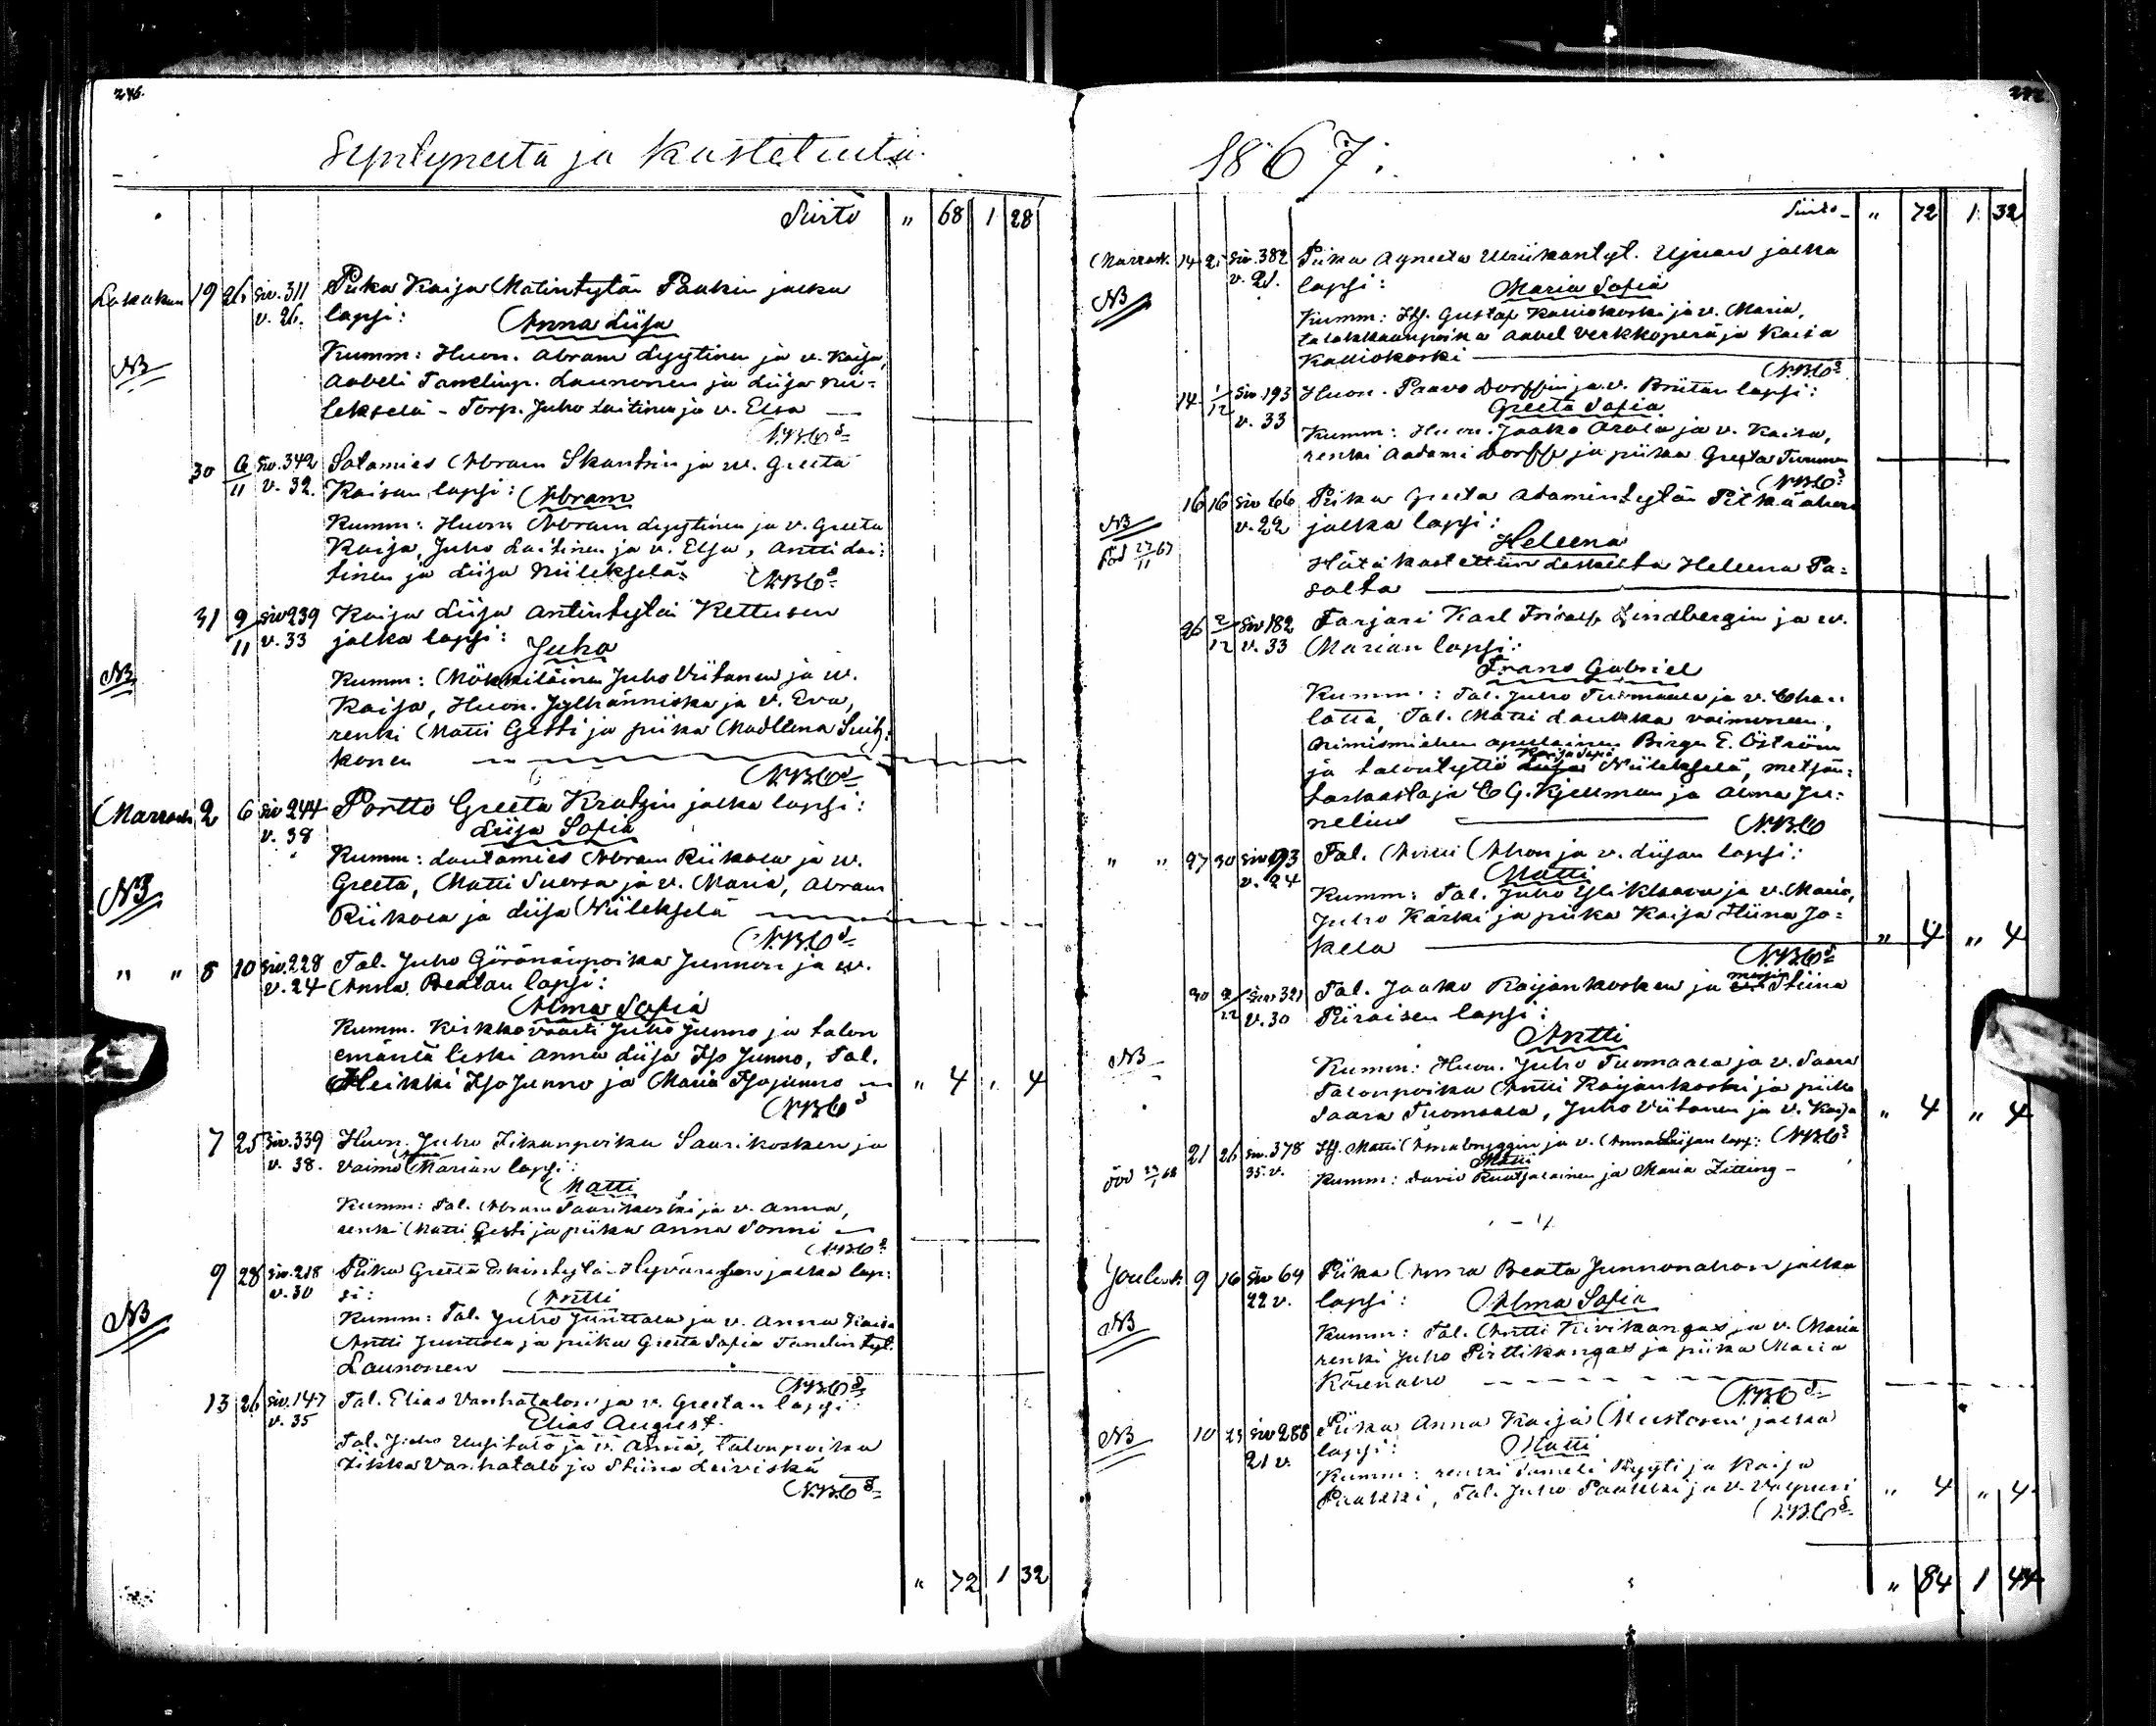 Syntyneitä ja kastetuita
Siirto " 68 1 28
Lokakuu 19 26 siv. 311 Piika Kaija Matintytän Paakin jalka
v. 26. lapsi: Anna Liisa
NB Kumm: Huon. Abram Lyytinen ja v. Kaija,
Aabeli Tanelinp. Launonen ja Liisa Nii=
lekselä - Torp. Juho Laitinen ja v. Elsa
N.B.C.
30 6/11 siv. 342 Satamies Abram Skantsin ja w. Greeta
v. 32. Kaisan lapsi: Abram
Kumm: Huon. Abram Lyytinen ja v. Greeta
Kaija, Juho Laitinen ja v. Elsa, Antti Lai=
tinen ja Liisa Niilekselä N.B.C.
31 9/11 siv 239 Kaija Liisa Antintytän Kettusen
v. 33 jalka lapsi: Juho
NB Kumm: Mökkiläinen Juho Viitanen ja w.
Kaisa, Huon. Jylhänniska ja v. Eva,
renki Matti Gesti ja piika Madlena
konen
N.B.C.
Marrask 2 6 siv 244 Portto Greeta Kratzin jalka lapsi:
v. 38 Liisa Sofia
Kumm: Lautamies Abram Riikola ja w.
NB Greeta, Matti Suorsa ja v. Maria, Abram
Riikola ja Liisa Niilekselä
N.B.C.
" " 5 10 siv. 228 Tal. Juho Göränänpoika Junnon ja w.
v. 24 Anna Beatan lapsi:
Alma Sofia
Kumm. Kirkkovaarti Juho Junno ja talon
emäntä leski Anna Liisa Iso Junno, Tal.
Heikki Iso Junno ja Maria Isojunno " 4 " 4
N.B.C.
7 25 siv. 339 Huon. Juho Iikanpoika Saarikosken ja
v. 38. vaimo Anna Marian lapsi:
Matti
Kumm: Tal. Abram Saarikoski ja v. Anna,
renki Matti Gesti ja piika Anna Sonni
N.B.C.
9 28 siv. 218 Piika Greeta Hyvärisen jalka lap=
v. 30 si: Antti
NB Kumm: Tal. Juho Junttola ja v. Anna Kaisa
Antti Junttola ja piika Greeta Sofia Tanelintyt.
Launonen
N.B.C.
13 26 siv. 147 Tal. Elias Vanhatalon ja v. Greetan lapsi
v. 35 Elias August.
Tal. Juho Uusitalo ja v. Anna, talonpoika
Iikka Vanhatalo ja Stiina Leiviskä
N.B.C.
" 72 1 32
1867:
Siirto " 72 1 32
Marrask. 14 siv. 382 Piika Agneeta jalka
v. 21. lapsi: Maria Sofia
NB Kumm: Gustaf Kalliokoski ja v. Maria,
Aabel Verkkoperä ja Kaisa
Kalliokoski
N.B.C.
14 1/12 siv. 193 Huon. Paavo Dorffin ja v. Briitan lapsi:
v. 33 Greeta Sofia
Kumm: Huon. Jaako Arola ja v. Kaisa,
renki Aadami Dorff ja piika Greeta
N.B.C.
16 16 siv 66 Piika Greeta Adamintytän Pitkäahon
NB v. 22 jalka lapsi:
död 27/11 67 Heleena
Hätäkastettiin Leskeltä Heleena Pa=
solta
26 2/12 siv 182 Farjari Karl Lindbergin ja w.
v. 33 Marian lapsi:
Frans Gabriel
Kumm: Tal. Juho Tuomaala ja v. Char=
lotta, Tal. Matti Laukka vaimoneen,
nimismiehen apulainen Birger E. Öström
ja talontyttö Kaija Sofia Niilekselä, metsän=
tarkastaja C G. Kjellman ja Alma Ju=
nelius N.B.C
" " 27 30 siv 193 Tal. Antti Ahon ja v. Liisan lapsi:
v. 24 Matti
Kumm: Tal. Juho ja v. Maria,
Juho Kärki ja piika Kaija Stiina Jo=
kela " 4 " 4
N.B.C.
30 siv 321 Tal. Jaako Raijankosken ja Stiina
v. 30 Piiraisen lapsi:
Antti
NB Kumm: Huon. Juho Tuomaala ja v. Saara
Talonpoika Antti Raijankoski ja piika
Saara Tuomaala, Juho Viitanen ja v. Kaija " 4 " 4
21 26 siv. 378 Matti ja v. Anna Liisan laps: N.B.C.
35. v. Matti
Kumm: David ja Maria Zitting -
Jouluk. 9 16 siv 64 Piika Anna Beata Junnonahon jalka
22 v. lapsi: Alma Sofia
NB Kumm: Tal. Antti Kivikangas ja v. Maria
renki Juho Pirttikangas ja piika Maria
Körenaho
N.B.C.
NB 10 siv 288 Piika Anna Kaija Mustosen jalka
21 v. lapsi: Matti
Kumm: renki ja Kaija
Paakki, Tal. Juho Paakki ja v. Valpuri " 4 " 4
N.B.C.
" 84 1 44